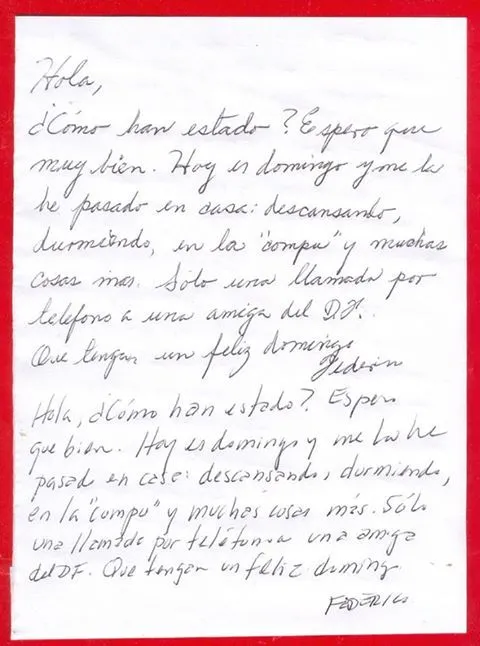 Hola,
¿Cómo han estado? Espero que
muy bien. Hoy es domingo y me la
he pasado en casa: descansando,
durmiendo, en la "compu" y muchas
cosas mas. Sólo una llamada por
teléfono a una amiga del D.F..
Que tengan un feliz domingo
Federico
Hola, ¿Cómo han estado? Espero
que bien. Hoy es domingo y me la he
pasado en casa: descansando, durmiendo,
en la "compu" y muchas cosas más. Sólo
una llamada por teléfono a una amiga
del DF. Que tengan un feliz doming
FEDERICO